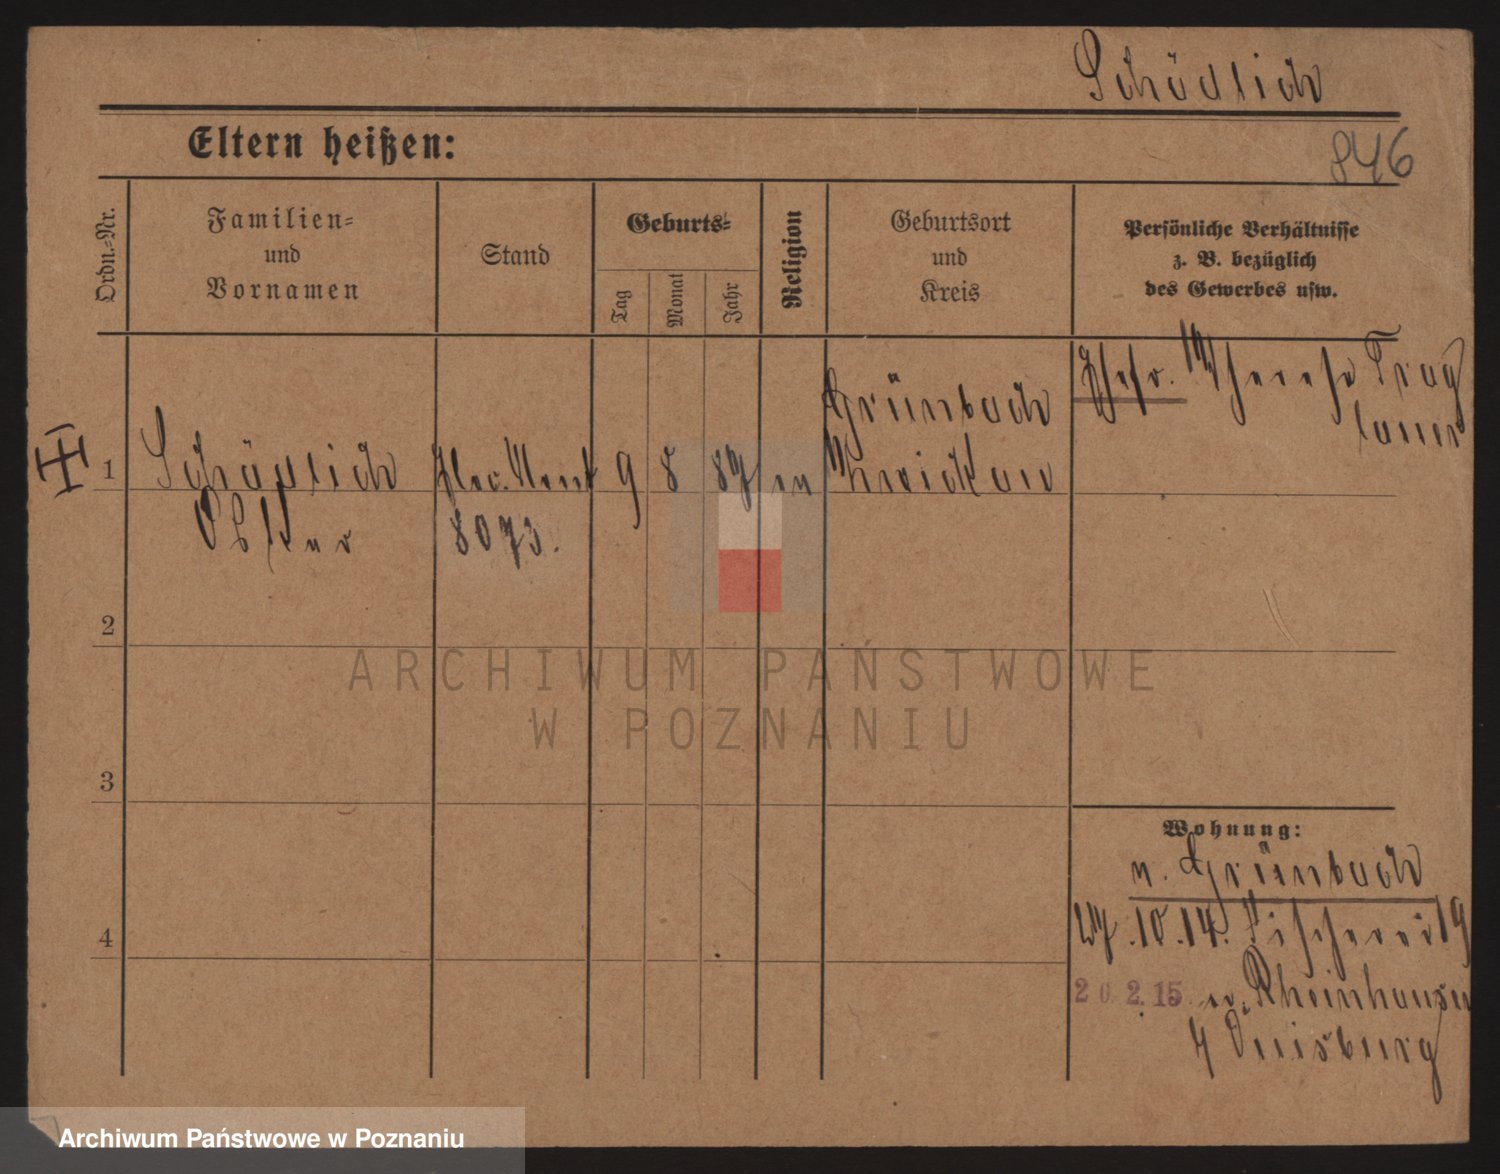 Schödlich
846
Eltern heißen:
Ordn.-Nr.
Familien-
und
Vornamen
Stand
Geburts-
Tag
Monat
Jahr
Religion
Geburtsort
und
Kreis
Persönliche Verhältnisse
z. B. bezüglich
des Gewerbes usw.
Ehefr. Therese
1
Schädlich
Oskar
8073.
9
8
87
ev
Grünbach
Zwickau
2
3
4
Wohnung:
n. Grünbach
27.10.14. Fischerei 19
20.2.15 n. Rheinhausen
Duisburg
ARCHIWUM PAŃSTWOWE
W POZNANIU
Archiwum Państwowe w Poznaniu